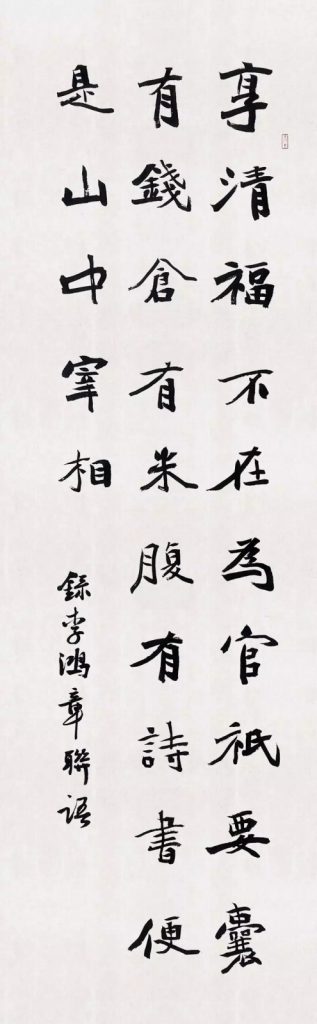 享清福不在為官祇要囊
有錢倉有米腹有詩書便
是山中宰相
錄李鴻章聯語